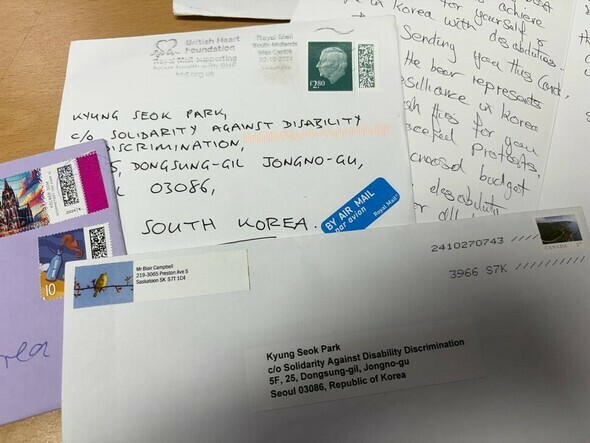 British Heart
Foundation
Royal Mail supporting
heart health with BHF
bhf.org.uk
Royal Mail
South Midlands
Mail Centre
£2.80
KYUNG SEOK PARK,
C/O SOLIDARITY AGAINST DISABILITY
DISCRIMINATION,
5, DONGSUNG-GIL JONGNO-GU,
L 03086,
SOUTH KOREA.
BY AIR MAIL
par avion
Royal Mail
achieve
for yourself &
in Korea with disabilities
Sending you this card,
the bear represents
resilliance in Korea
for you
Protests.
budget
disability
10
rea
Mr Blair Campbell
219-3065 Preston Ave S
Saskatoon SK S7T 1C4
2410270743
3966 S7K
CANADA
Kyung Seok Park
c/o Solidarity Against Disability Discrimination
5F, 25, Dongsung-gil, Jongno-gu
Seoul 03086, Republic of Korea